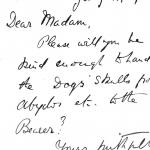 Dear Madam,
Please will you be
kind enough to hand
the Dogs' Skulls fr
Abydos etc. to the
Bearer?
Yours faithfully